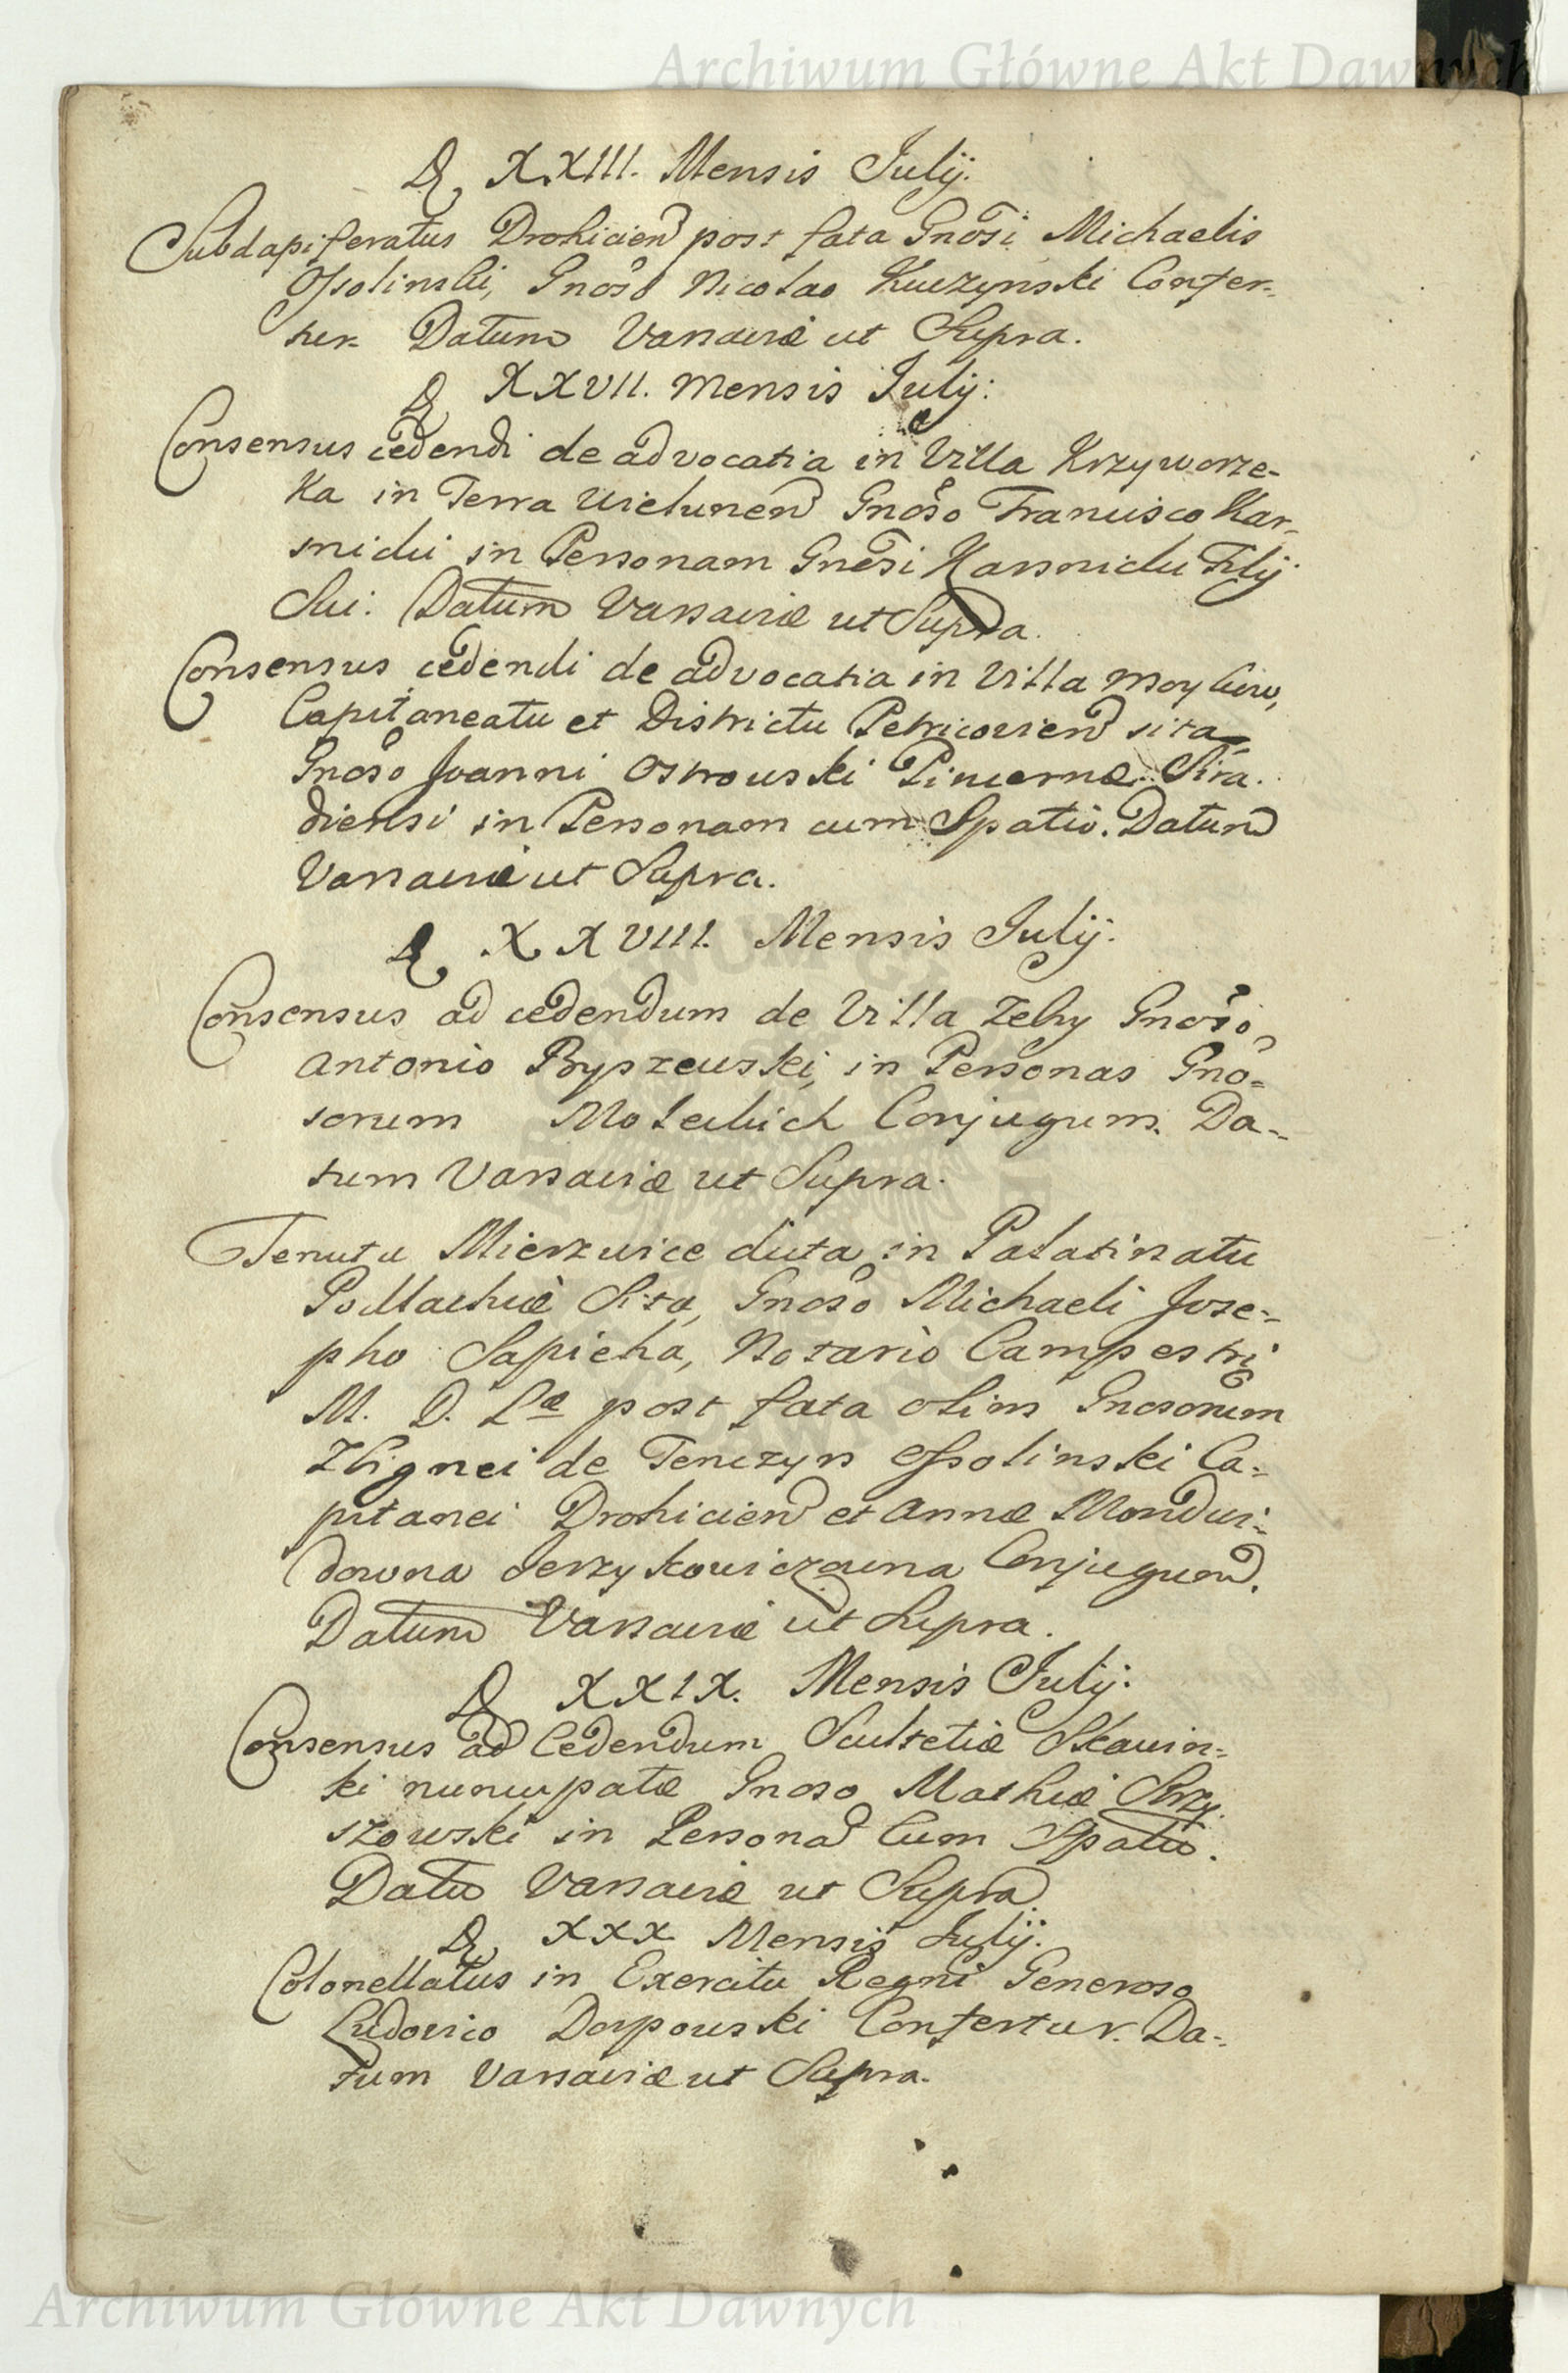 Archiwum Główne Akt Dawnych
D. XXIII. Mensis Julij.
Subdapiferatus Drohicien post fata Gnosi Michaelis
Ossolinski, Gnoso Nicolao Kuczynski Confer-
tur. Datum Varsaviæ ut Supra.
D. XXVII. Mensis Julij:
Consensus cedendi de advocatia in Villa Krzyworze-
ka in Terra Vielunen Gnoso Francisco Kar-
snicki in Personam Gnosi Karsnicki Filij
Sui. Datum Varsaviæ ut Supra.
Consensus cedendi de advocatia in Villa
Capitaneatu et Districtu Petricovien sita,
Gnoso Joanni Ostrowski Pincernæ Sira-
diensi in Personam cum Spatio. Datum
Varsaviæ ut Supra.
D. XXVIII. Mensis Julij.
Consensus ad cedendum de Villa Gnoso
Antonio Byszewski, in Personas Gno-
sorum Conjugum. Da-
tum Varsaviæ ut Supra.
Tenuta Mierzwice dicta in Palatinatu
Podlachiæ Sita, Gnoso Michaeli Jose-
pho Sapieha, Notario Campestri
M. D. Læ post fata olim Gnosorum
Zbignei de Tenczyn Ossolinski Ca-
pitanei Drohicien et Annæ Mondwi-
downa Jerzykowiczowna Conjugum.
Datum Varsaviæ ut Supra.
D. XXIX. Mensis Julij.
Consensus ad Cedendum Scultetiæ Skawin-
ki nuncupatæ Gnoso Mathiæ Strzy-
szowski in Persona Cum Spatio.
Datu Varsaviæ ut Supra
D. XXX Mensis Julij.
Colonellatus in Exercitu Regni Generoso
Ludovico Dorpowski Confertur. Da-
tum Varsaviæ ut Supra.
Archiwum Główne Akt Dawnych